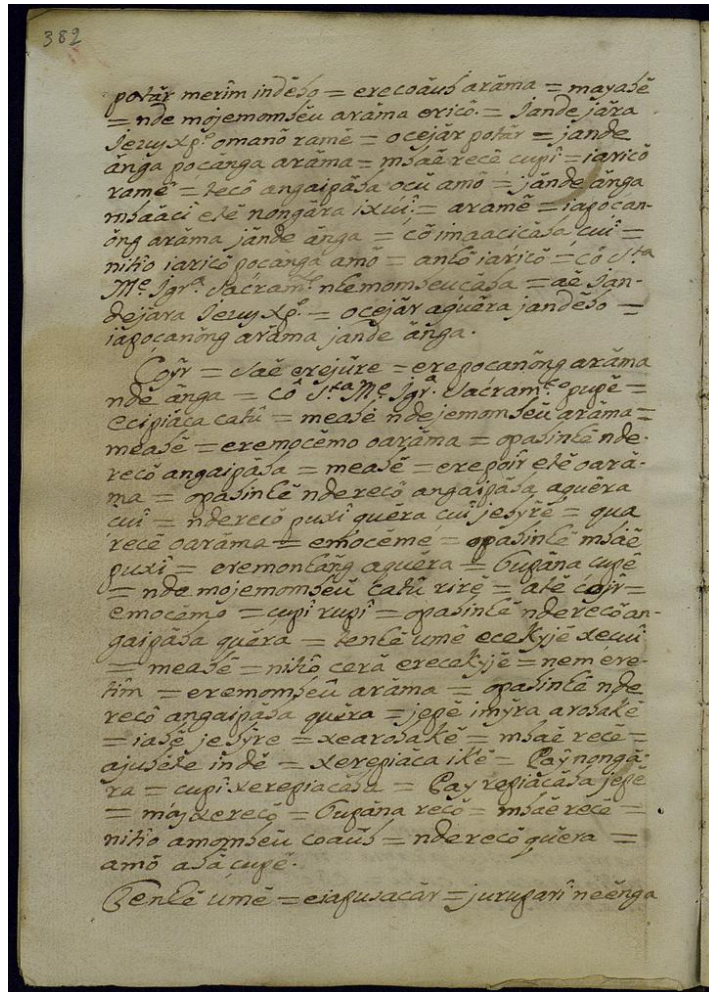 382
potăr merîm indēbo = erecoāub arāma = mayabē
= nde mojemombēu arāma oricō. = Jande jāra
Jezuy Xp.º omanō ramē = ocejăr potăr = jande
ānga poçanga arāma = mbāē recē cupî = iaricō
ramē = tecō angaipāba ocū amō = jānde ānga
mbāāci etē nongāra ixuî = aramē = iapoçan-
ōng arāma jānde ānga = cō imaacicāba cuî =
nitîo iaricō poçanga amō = antō iaricō = cō S.ta
M.e Igr.a Sacram.to nbemombeucāba = aē Jan-
dejara Jezuy Xp.º = ocejăr aguēra jandēbo =
iapocanōng arāma jande ānga.
Coȳr = Saē erejūre = erepocanōng arāma
ndē ānga = cō S.ta M.e Igr.a Sacram.to pupē =
ecipiāca catū = meabē ndejemombēu arāma =
meabē = eremocēmo oarāma = opabintē nde-
recō angaipāba = meabē = erepoir etē oarā-
ma = opabintē nderecō angaipāba aguēra
cuî = nderecō puxî guēra cuî jebȳrē = qua
recē oarāma = emōceme = opābintē mbāē
puxî = eremontāng aguēra = Tupāna cupē
= nde mojemombēu catū rirē = atē coȳr =
emocēmo = cupî rupî = opabintē nderecō an-
gaipāba guēra = tentē umē ecekyjē xecuî
= meabē = nitîo cerā erecekyjē = nem ere-
tîm = eremombeū arāma = opabintē nde
recō angaipāba guēra = jepē imȳra arobakē
= iabē jebȳre = xearobakē = mbāē recē =
ajubēte indē = xerepiaca ikē = Paȳ nongā-
ra = cupî xerepiacāba = Pay repiācāba jepē
= māy xerecō = Tupāna recō = mbāē recē =
nitîo amombēu coāub = nderecō guēra =
amō abā cupē.
Tentē umē = eiapusacār = jurupari neēnga